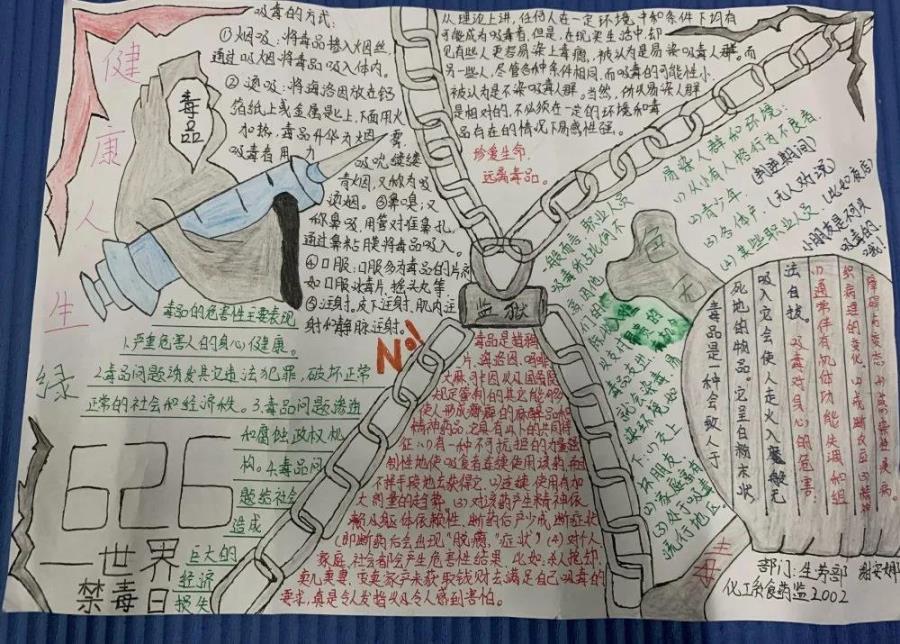 健康人生
绿色无毒
毒品
吸毒的方式:
①烟吸:将毒品掺入烟丝,
通过吸烟将毒品吸入体内。
②烫吸:将海洛因放在钙
箔纸上或金属匙上,下面用火
加热,毒品升华为烟雾,
吸毒者用力
吸吮缕缕
青烟,又称为吸
烫烟。③鼻嗅:又
称鼻吸,用管对准鼻孔,
通过鼻粘膜将毒品吸入
④口服:口服多为毒品的片剂
如口服冰毒片、摇头丸等
⑤注射。皮下注射、肌肉注
射和静脉注射。
从理论上讲,任何人在一定环境中和条件下均有
可能成为吸毒者,但是,在现实生活中,却
见有些人更容易染上毒瘾,被认为是易染吸毒人群。而
另一些人,尽管各种条件相同,而吸毒的可能性小,
被认为是不染吸毒人群。当然,
是相对的,不必须在一定的环境和毒
品存在的情况下易感性强。
珍爱生命,
远离毒品。
易染人群和环境:
(1)从小有人格行为不良者,
(2)青少年.(叛逆期间)
(3)个体户.(无人劝说)
(4)某些职业人员.(比如夜店)
小朋友是不可以
吸毒的
哦!
监狱
No!
毒品的危害性主要表现
1.严重危害人的身心健康。
2.毒品问题诱发其它违法犯罪,破坏正常
正常的社会和经济秩。3.毒品问题渗透
和腐蚀政权机
构。4.毒品问
题给社会
造成
巨大的
经济
损失
626
—世界
禁毒日
毒品是指鸦
片、海洛因、吗啡
大麻、可卡因以及国家
规定管制的其它能够
使人形成瘾癖的麻醉品和
精神药品,它具有以下的共同特
征:(1)有一种不可抗拒的力量强
制性地使吸食者连续使用该药,并且
不择手段地去获得它,(2)连续使用有加
大剂量的趋势,(3)对该药产生精神依
赖及躯体依赖性,断药后产生戒断症状
(即断药后会出现“脱瘾”症状),(4)对个人
家庭、社会都会产生危害性结果,比如:杀人抢劫,
卖儿卖妻,变卖家产来获取钱财去满足自己吸毒的
要求,真是令人发指以及令人感到害怕。
一般而言,职业人员
毒品是一种会致人于
死地的物品。它呈白粉末状
吸入它会使人走火入魔般无
法自拔。 吸毒对身心的危害:
(1)通常伴有机体功能失调和组
织病理的变化.(2)戒断反应.(3)精神
障碍与变态.(4)感染性疾病。
部门:生劳部
化工系食药监2002